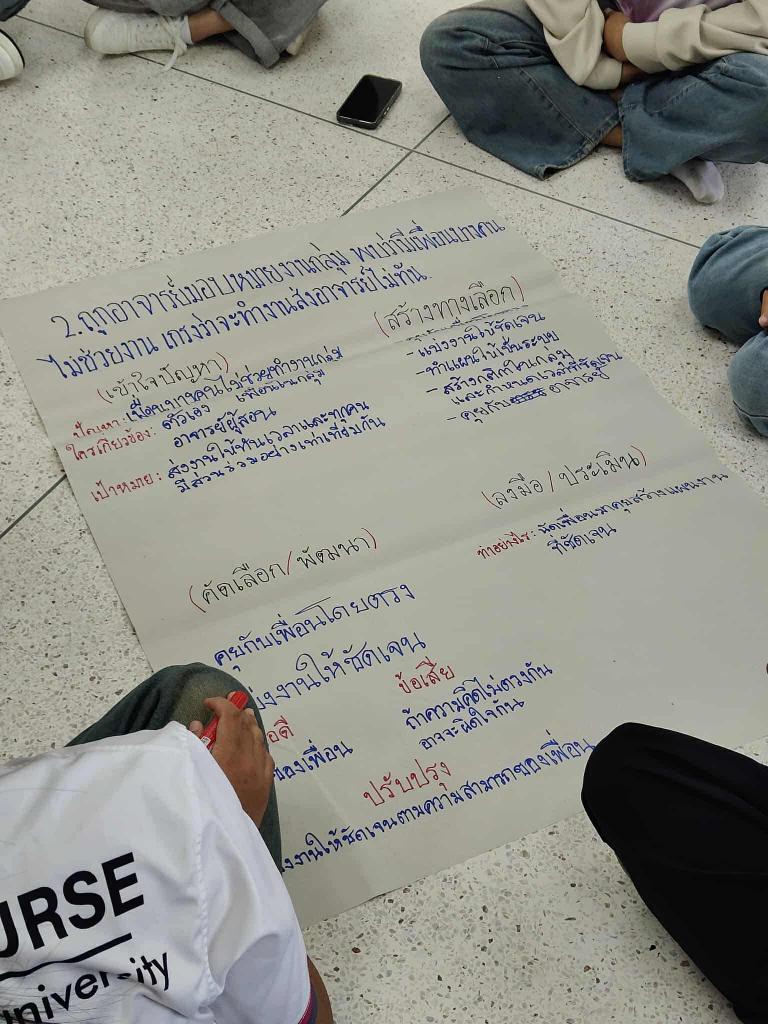 2.ถูกอาจารย์มอบหมายงานกลุ่ม พบว่ามีเพื่อนบางคน
ไม่ช่วยงาน เกรงว่าจะทำงานส่งอาจารย์ไม่ทัน.
(เข้าใจปัญหา)
ปัญหา: เพื่อนบางคนไม่ช่วยทำงานกลุ่ม
ใครเกี่ยวข้อง: ตัวเอง เพื่อนในกลุ่ม
อาจารย์ผู้สอน
เป้าหมาย: ส่งงานให้ทันเวลาและทุกคน
มีส่วนร่วมอย่างเท่าเทียมกัน
(สร้างทางเลือก)
- แบ่งงานให้ชัดเจน
- ทำแผนให้เป็นระบบ
- สร้างกติกาในกลุ่ม
และกำหนดเวลาที่ชัดเจน
- คุยกับ อาจารย์
(คัดเลือก/พัฒนา)
คุยกับเพื่อนโดยตรง
บ่งงานให้ชัดเจน
อดี
ของเพื่อน
ข้อเสีย
ถ้าความคิดไม่ตรงกัน
อาจจะผิดใจกัน
ปรับปรุง
งงานให้ชัดเจนตามความสามารถของเพื่อน
(ลงมือ/ประเมิน)
ทำอย่างไร: นัดเพื่อนมาคุยสร้างแผนงาน
ที่ชัดเจน
URSE
university